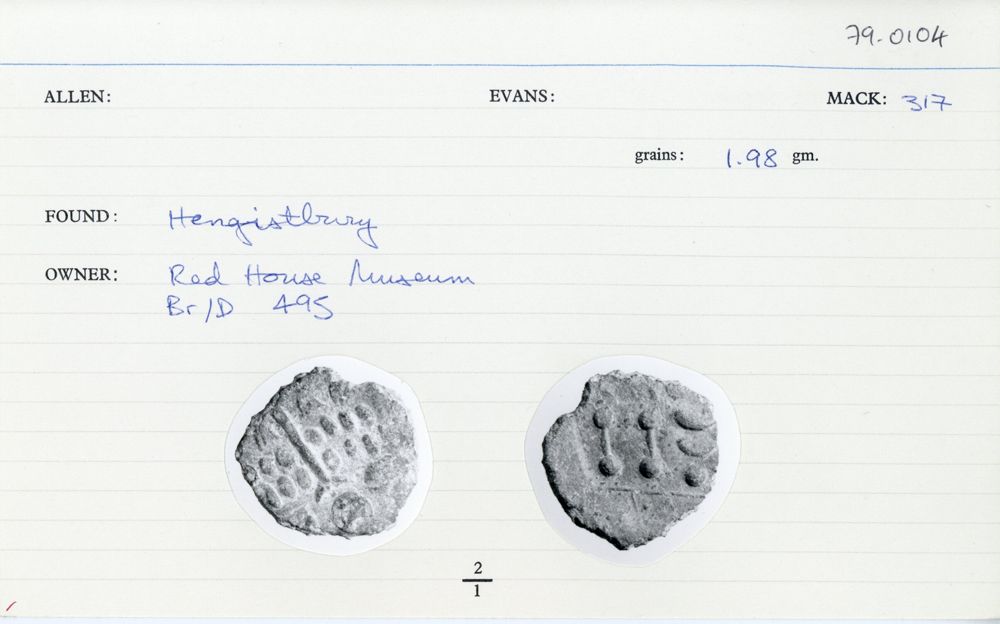 79.0104
ALLEN: EVANS: MACK: 317
grains: 1.98 gm.
FOUND: Hengistbury
OWNER: Red House Museum
Br/D 495
2
1